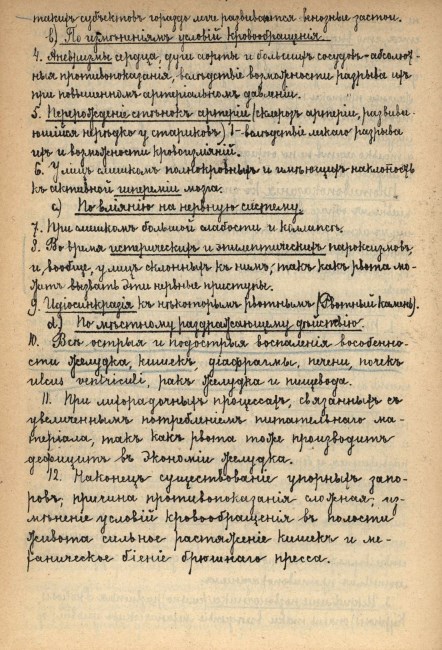 такихъ субъектовъ гораздо легче развиваются венозные застои.
b) По измѣненіямъ условій кровообращенія.
4. Аневризмы сердца, дуги аорты и большихъ сосудовъ - абсолют-
ныя противопоказанія, вслѣдствіе возможности разрыва ихъ
при повышенномъ артеріальномъ давленіи.
5. Перерожденіе стѣнокъ артерій (склерозъ артеріи, развиваю-
щійся нерѣдко у стариковъ) - вслѣдствіе легкаго разрыва
ихъ и возможности кровоизліяній.
6. У лицъ слишкомъ полнокровныхъ и имѣющихъ наклонность
къ активной гипереміи мозга.
c) По вліянію на нервную систему.
7. При слишкомъ большой слабости и коллапсѣ.
8. Во время истерическихъ и эпилептическихъ пароксизмовъ,
и, вообще, у лицъ склонныхъ къ нимъ, такъ какъ рвота мо-
жетъ вызвать эти нервные приступы.
9. Идіосинкразія къ нѣкоторымъ рвотнымъ (Рвотный камень).
d) По мѣстному раздражающему дѣйствію.
10. Всѣ острыя и подострыя воспаленія вособенно-
сти желудка, кишекъ, діафрагмы, печени, почекъ
ulcus ventriculi, ракъ желудка и пищевода.
11. При лихорадочныхъ процессахъ, связанныхъ съ
увеличеннымъ потребленіемъ питательнаго ма-
теріала, такъ какъ рвота тоже производитъ
дефицитъ въ экономіи желудка.
12. Наконецъ существованіе упорныхъ запо-
ровъ, причина противопоказанія сложная: из-
мѣненіе условій кровообращенія въ полости
живота сильное растяженіе кишекъ и ме-
ханическое біеніе брюшнаго пресса.